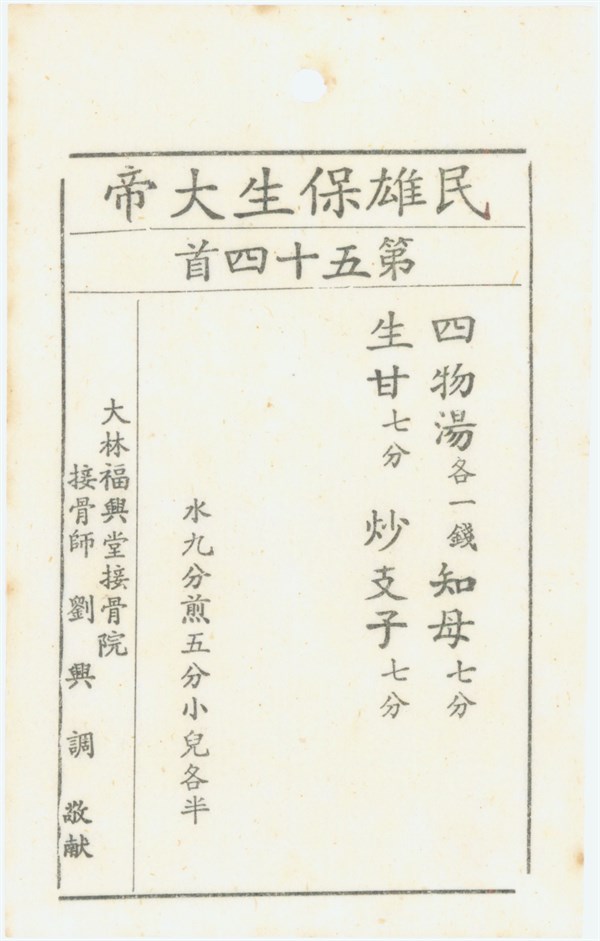 民雄保生大帝
第五十四首
四物湯各一錢 知母七分
生甘七分 炒支子七分
水九分煎五分小兒各半
大林福興堂接骨院
接骨師 劉興調 敬献